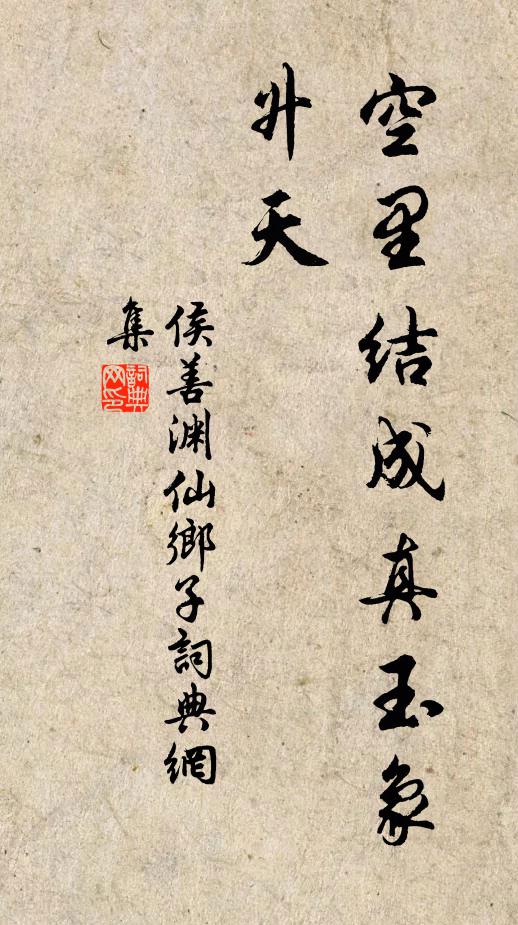 空里结成真玉象
升天
侯善渊仙鄉子詞典網
集
詞典网印